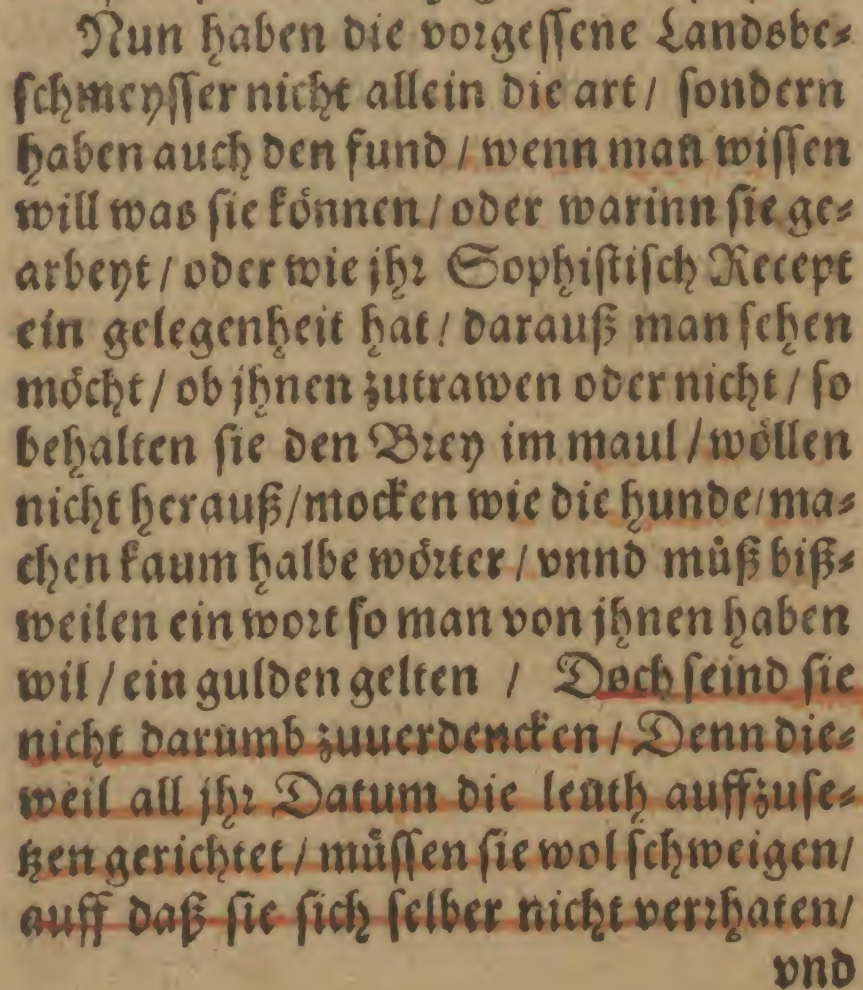 Nun haben die vorgessene Landsbe⸗
schmeysser nicht allein die art / sondern
haben auch den fund / wenn man wissen
will was sie können / oder warinn sie ge⸗
arbeyt / oder wie jhr Sophistisch Recept
ein gelegenheit hat / darauß man sehen
möcht / ob jhnen zutrawen oder nicht / so
behalten sie den Brey im maul / wöllen
nicht herauß / mocken wie die hunde / ma⸗
chen kaum halbe wörter / vnnd můß biß⸗
weilen ein wort so man von jhnen haben
wil / ein gulden gelten / Doch seind sie
nicht darumb zuuerdencken / Denn die⸗
weil all jhr Datum die leuth auffzuse⸗
tzen gerichtet / můssen sie wol schweigen /
auff daß sie sich selber nicht verrhaten /
vnd